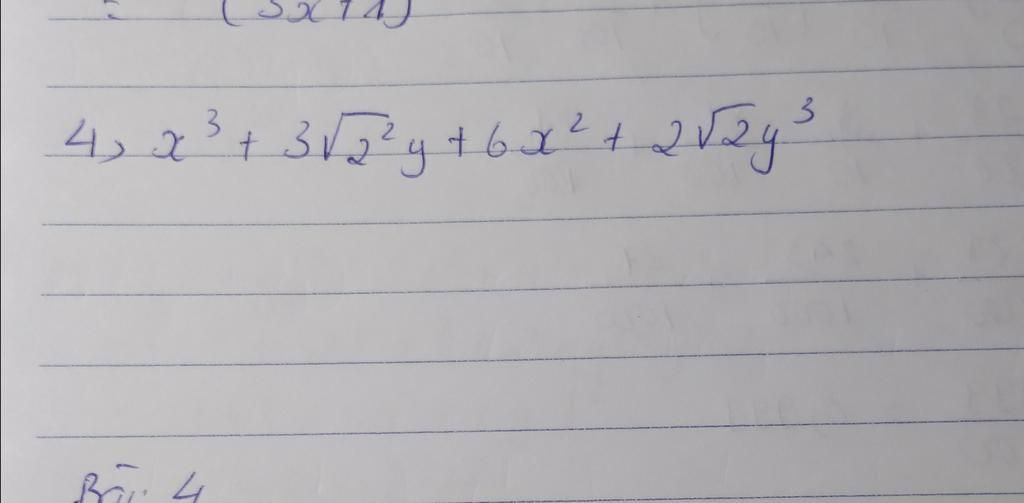 = (3x+1)
4, x³ + 3√2² y + 6x² + 2√2 y³
Bài 4